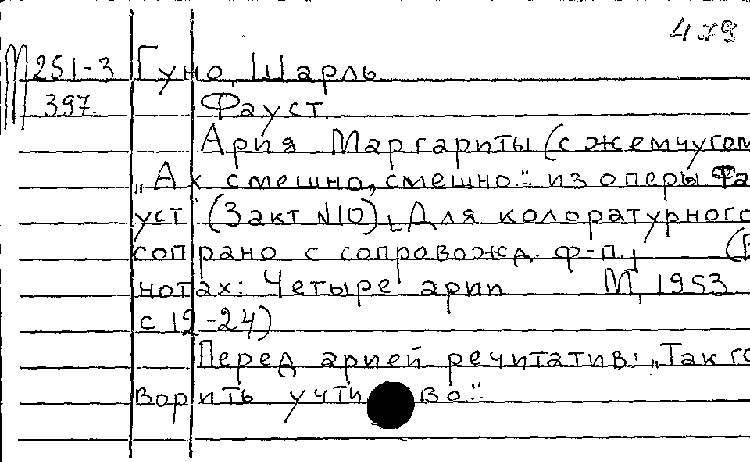 479
М 251-3 Гуно, Шарль
397. Фауст.
Ария Маргариты (с жемчугом
„Ах смешно, смешно." из оперы Фа
уст (3акт №10), Для колоратурного
сопрано с сопровожд. ф-п.,
нотах: Четыре арии М, 1953
с 19-24)
Перед арией речитатив: „Так го
ворить учтиво."